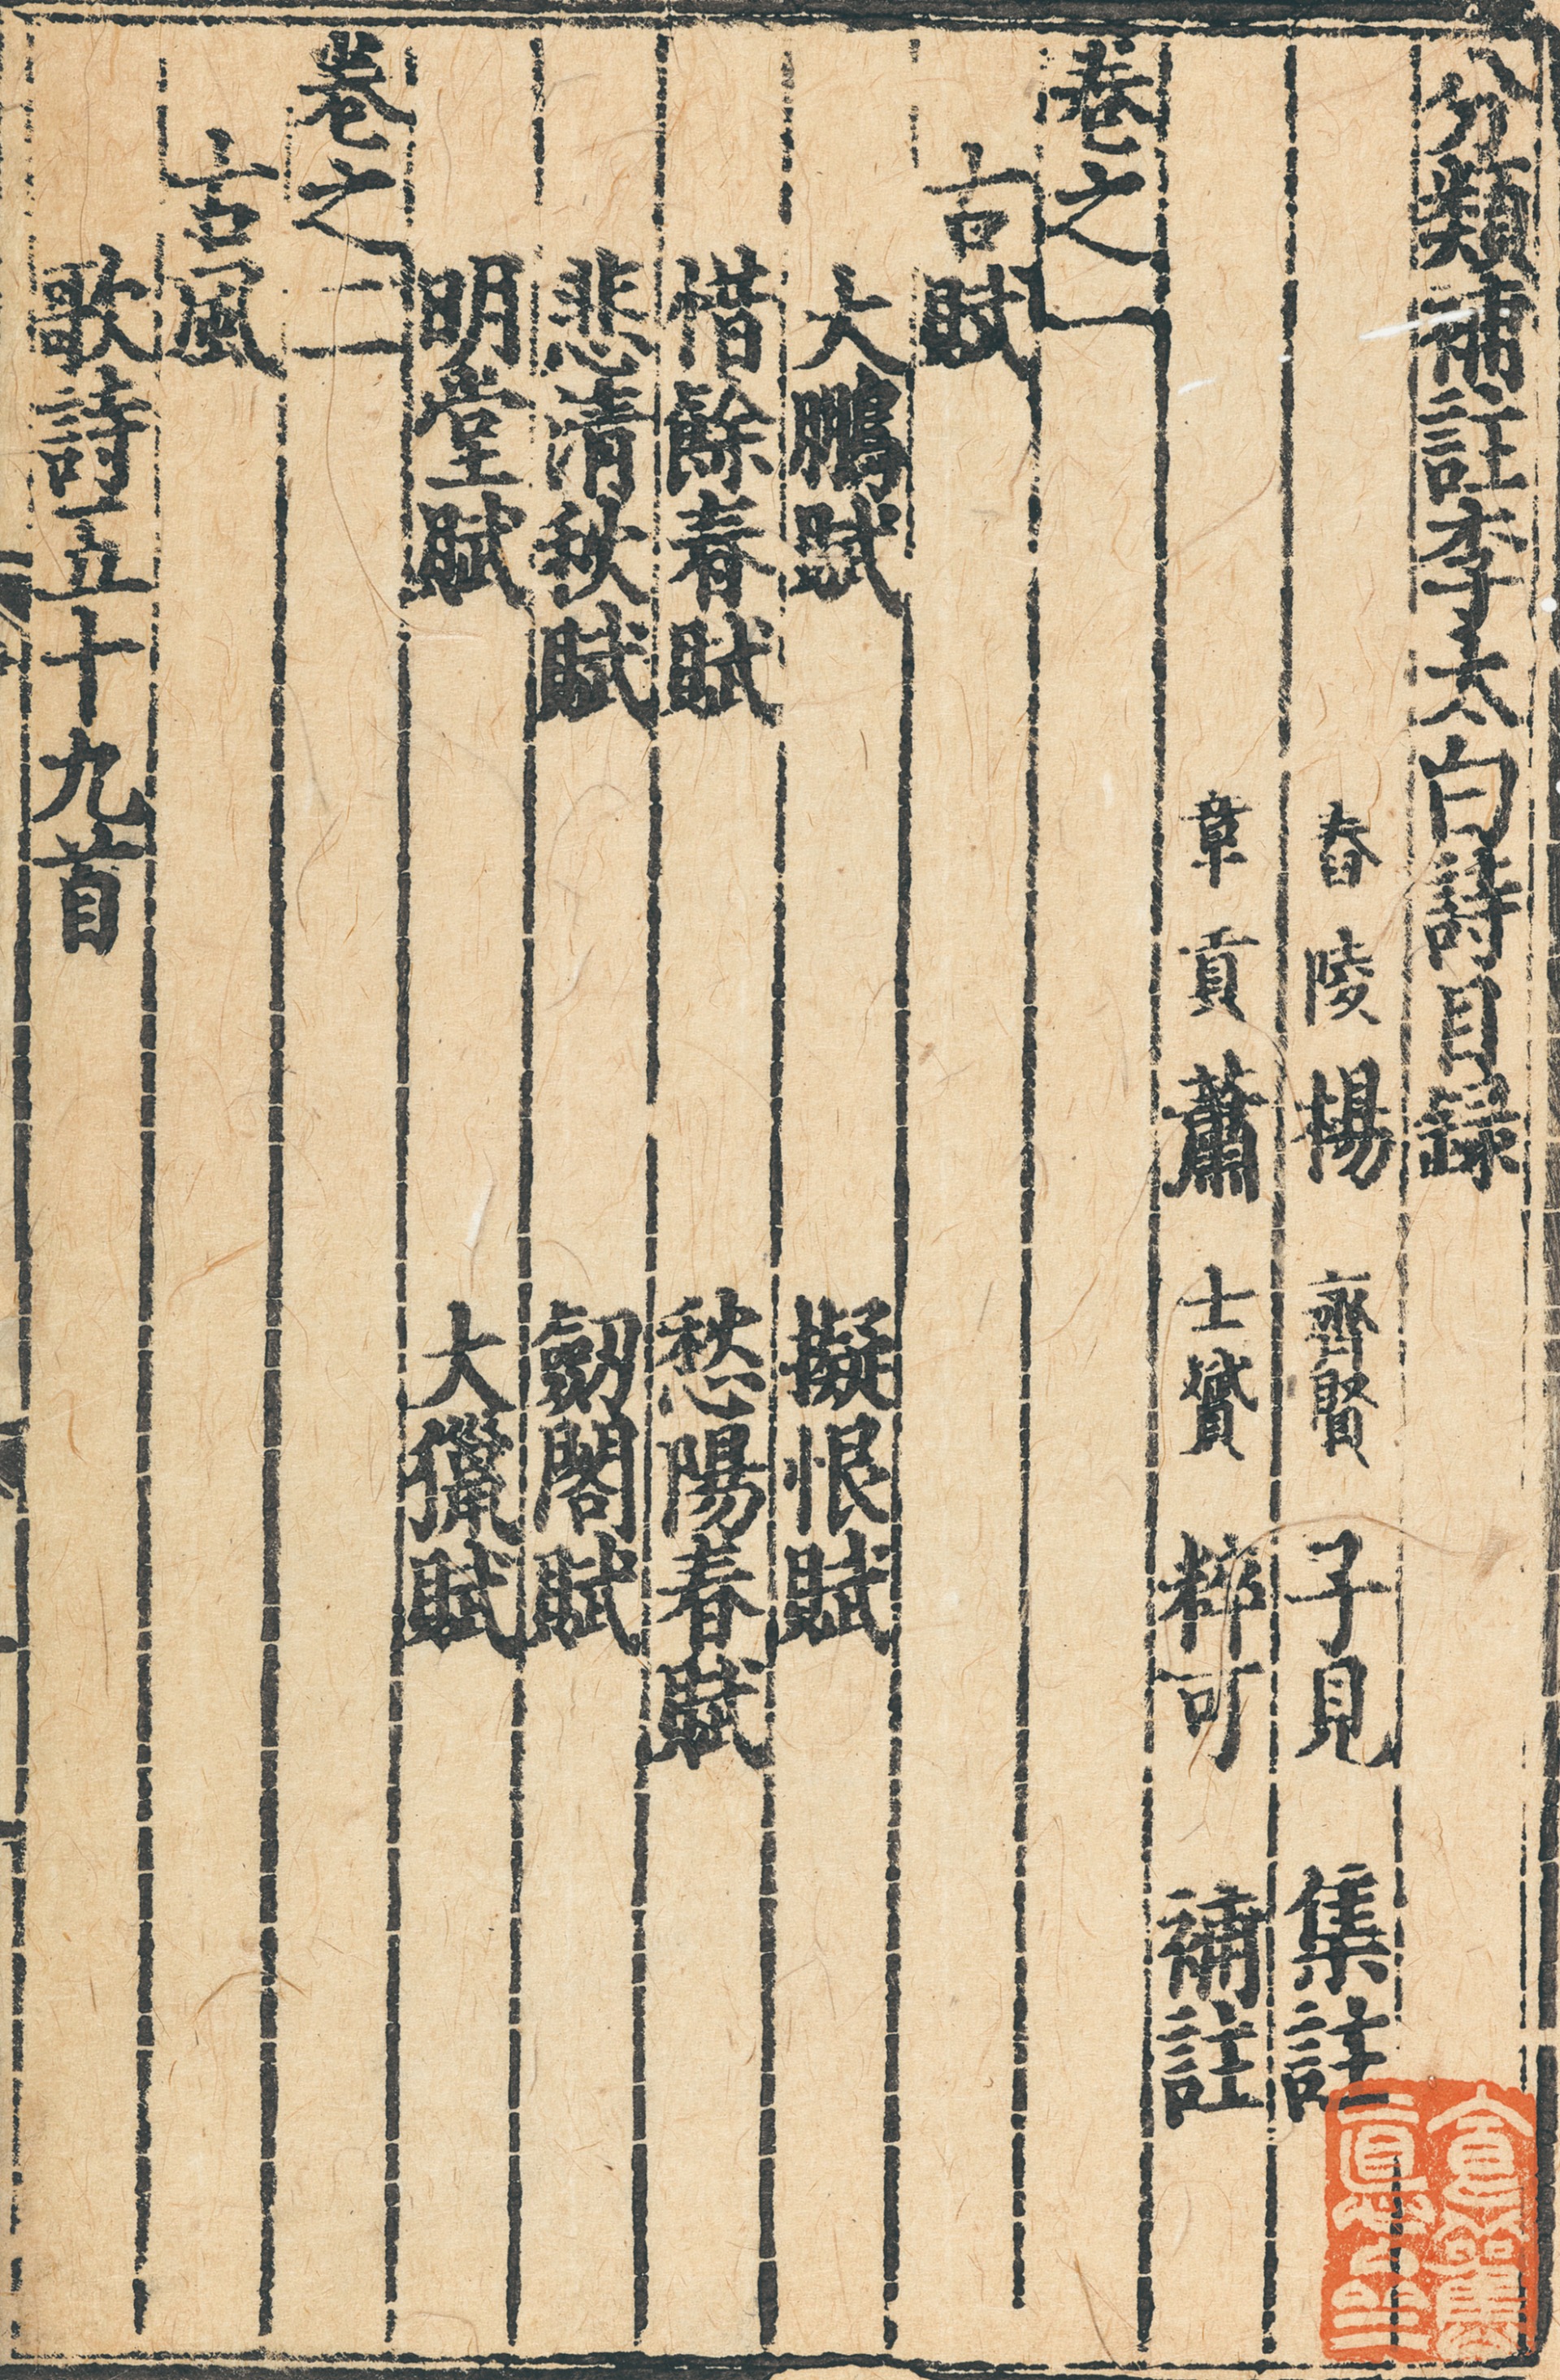 分類補註李太白詩目録
舂陵 楊 齊賢 子見 集註
章貢 蕭 士贇 粹可 補註
卷之一
古賦
大鵬賦 擬恨賦
惜餘春賦 愁陽春賦
悲清秋賦 劒閣賦
明堂賦 大獵賦
卷之二
古風
歌詩五十九首